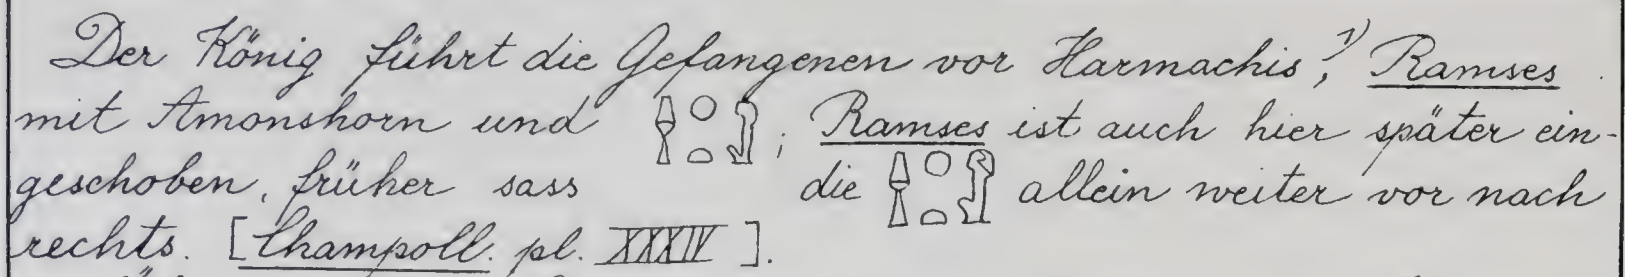 Der König führt die Gefangenen vor Harmachis¹⁾, Ramses
mit Amonshorn und ; Ramses ist auch hier später ein-
geschoben, früher sass die allein weiter vor nach
rechts. [Champoll. pl. XXXIV].